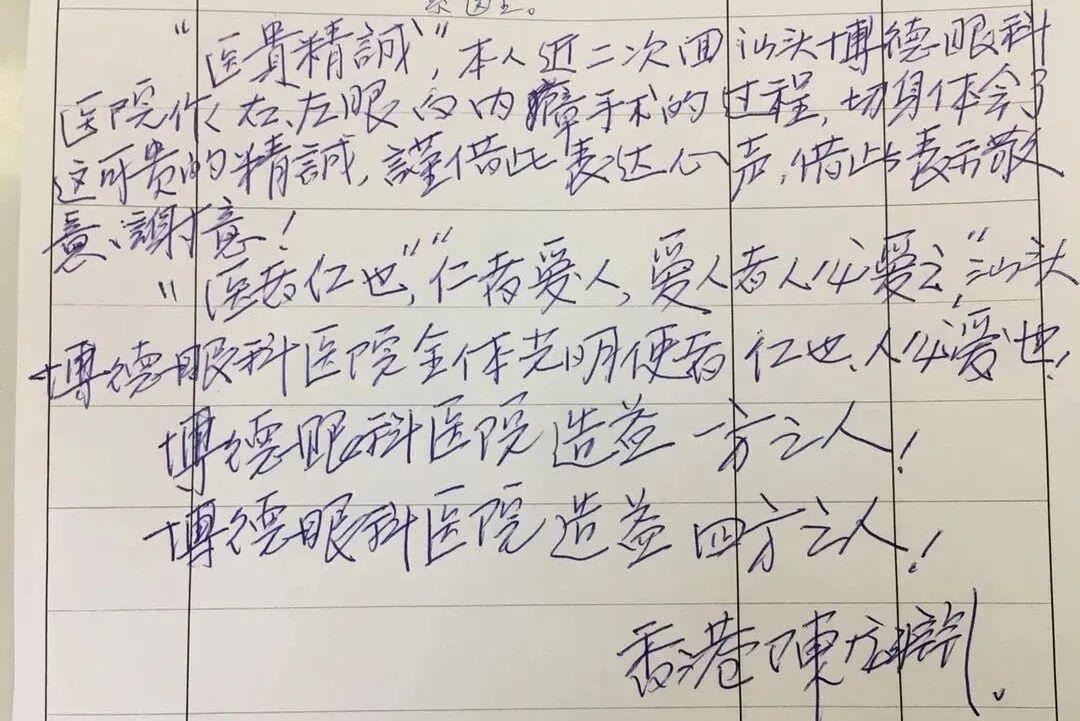 医生。
“医貴精誠”,本人近二次回汕头博德眼科
医院作右、左眼白内障手术的过程,切身体会了
这可贵的精誠,謹借此表达心声,借此表示敬
意、謝意!
“医者仁也”,“仁者爱人,爱人者人必爱之”汕头
博德眼科医院全体光明使者仁也、人必爱也!
博德眼科医院造益一方之人!
博德眼科医院造益四方之人!
香港陳